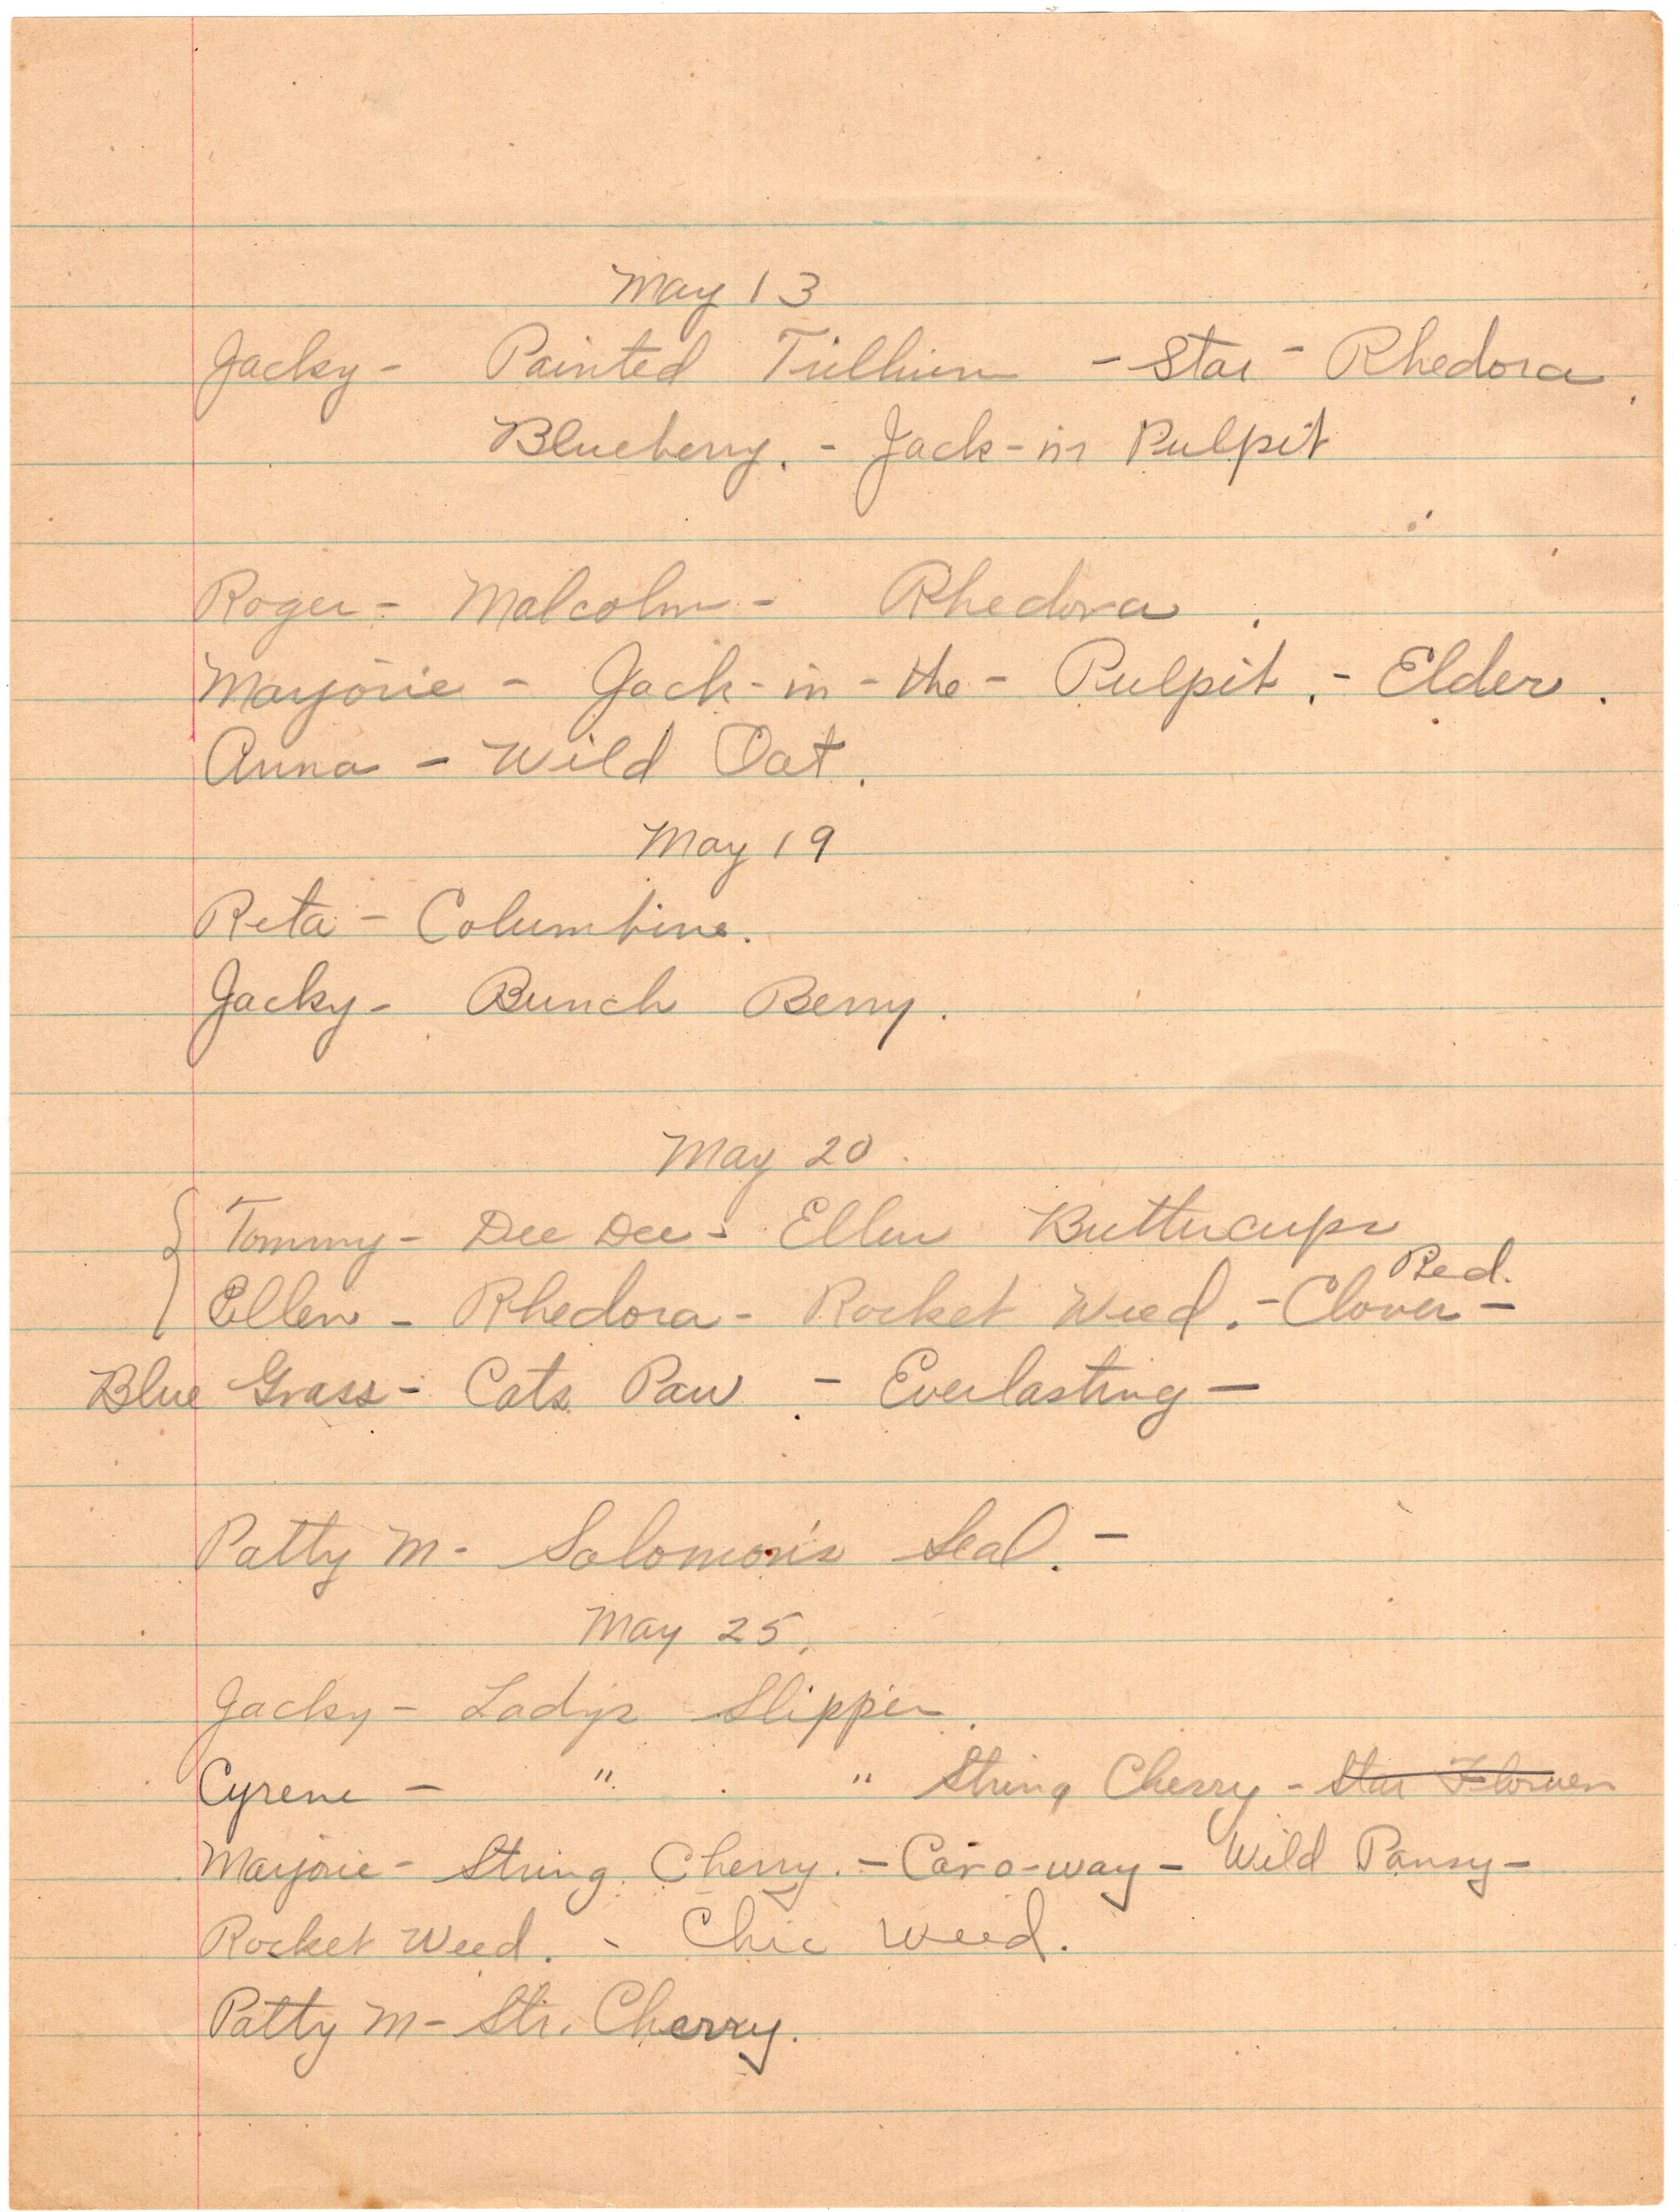 May 13
Jacky - Painted Trillium - Star - Rhedora,
Blueberry. - Jack-in Pulpit
Roger - Malcolm - Rhedora.
Marjorie - Jack-in-the-Pulpit. - Elder.
Anna - Wild Oat.
May 19
Reta - Columbine.
Jacky - Bunch Berry.
May 20.
Tommy - Dee Dee - Ellen Buttercups
Red.
Ellen - Rhedora - Rocket Weed. - Clover -
Blue Grass - Cats Paw. - Everlasting -
Patty M - Solomon's Seal. -
May 25.
Jacky - Ladys Slipper.
Cyrene - " " String Cherry - Star Flower
Marjorie - String Cherry. - Cara-way - Wild Pansy -
Rocket Weed. - Chic Weed.
Patty M - Str. Cherry.